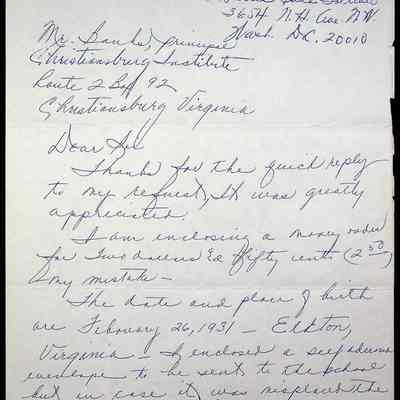 3654 N.H. Ave. N.W.
Wash. D.C. 20010
Mr. Banks, Principle
Christiansburg Institute
Route 2 Box 92
Christiansburg Virginia
Dear Sir
Thanks for the quick reply
to my request, It was greatly
appreciated.
I am enclosing a money order
for Two dollars & fifty cents (2.50)
my mistake -
The date and place of birth
are February 26, 1931 - Elkton,
Virginia - I enclosed a self address
envelope to be sent to the school
but in case it was misplaced the